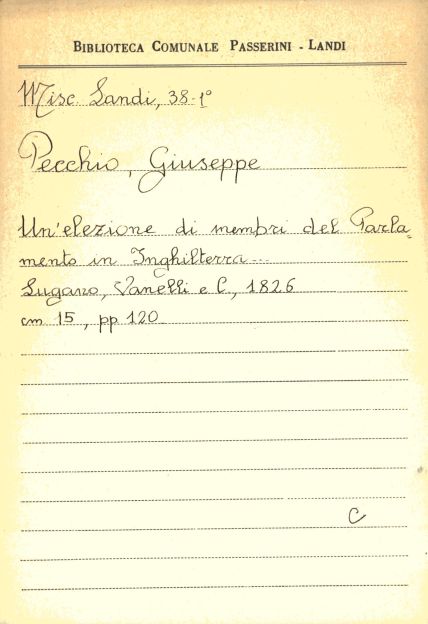 BIBLIOTECA COMUNALE PASSERINI - LANDI
Misc. Landi, 38-1°
Pecchio, Giuseppe
Un'elezione di membri del Parla-
mento in Inghilterra...
Lugano, Vanelli e C, 1826
cm 15, pp 120
C